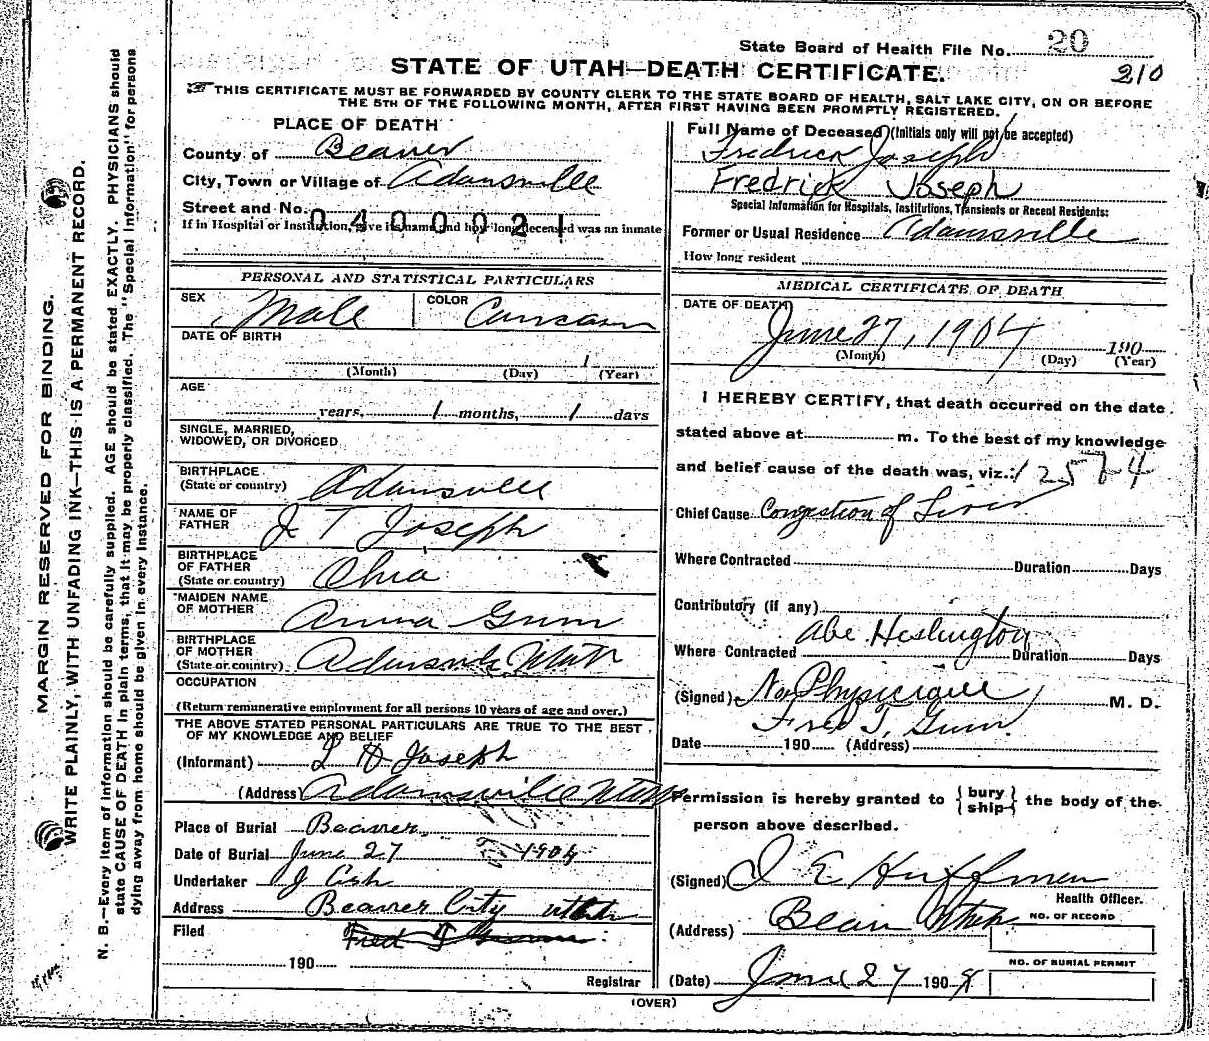 State Board of Health File No. 20
STATE OF UTAH—DEATH CERTIFICATE.
210
THIS CERTIFICATE MUST BE FORWARDED BY COUNTY CLERK TO THE STATE BOARD OF HEALTH, SALT LAKE CITY, ON OR BEFORE
THE 5TH OF THE FOLLOWING MONTH, AFTER FIRST HAVING BEEN PROMPTLY REGISTERED.
MARGIN RESERVED FOR BINDING.
WRITE PLAINLY, WITH UNFADING INK—THIS IS A PERMANENT RECORD.
N. B.—Every item of information should be carefully supplied. AGE should be stated EXACTLY. PHYSICIANS should
state CAUSE OF DEATH in plain terms, that it may be properly classified. The "Special Information" for persons
dying away from home should be given in every instance.
PLACE OF DEATH
County of Beaver
City, Town or Village of Adamsville
Street and No.
0400021
If in Hospital or Institution, give its name and how long deceased was an inmate
PERSONAL AND STATISTICAL PARTICULARS
SEX Male
COLOR
DATE OF BIRTH
1
(Month) (Day) (Year)
AGE
years, 1 months, 1 days
SINGLE, MARRIED,
WIDOWED, OR DIVORCED
BIRTHPLACE
(State or country) Adamsville
NAME OF
FATHER J T Joseph
BIRTHPLACE
OF FATHER
(State or country) Ohio
MAIDEN NAME
OF MOTHER Anna Gunn
BIRTHPLACE
OF MOTHER
(State or country) Adamsville Utah
OCCUPATION
(Return remunerative employment for all persons 10 years of age and over.)
THE ABOVE STATED PERSONAL PARTICULARS ARE TRUE TO THE BEST
OF MY KNOWLEDGE AND BELIEF
(Informant) L H Joseph
(Address) Adamsville Utah
Place of Burial Beaver
Date of Burial June 27 1904
Undertaker J Cish
Address Beaver City Utah
Filed Fred T Gunn
190
Registrar
Full Name of Deceased (Initials only will not be accepted)
Fredrick Joseph
Fredrick Joseph
Special Information for Hospitals, Institutions, Transients or Recent Residents:
Former or Usual Residence Adamsville
How long resident
MEDICAL CERTIFICATE OF DEATH
DATE OF DEATH
June 27, 1904 190
(Month) (Day) (Year)
I HEREBY CERTIFY, that death occurred on the date
stated above at m. To the best of my knowledge
and belief cause of the death was, viz.:
Chief Cause Congestion of Liver
Where Contracted Duration Days
Contributory (if any)
Abe Heslington
Where Contracted Duration Days
(Signed) No Physician M. D.
Fred T. Gunn
Date 190 (Address)
Permission is hereby granted to {bury ship} the body of the
person above described.
(Signed) J E Huffman
Health Officer.
(Address) Beaver Utah
NO. OF RECORD
NO. OF BURIAL PERMIT
(Date) June 27 1904
(OVER)